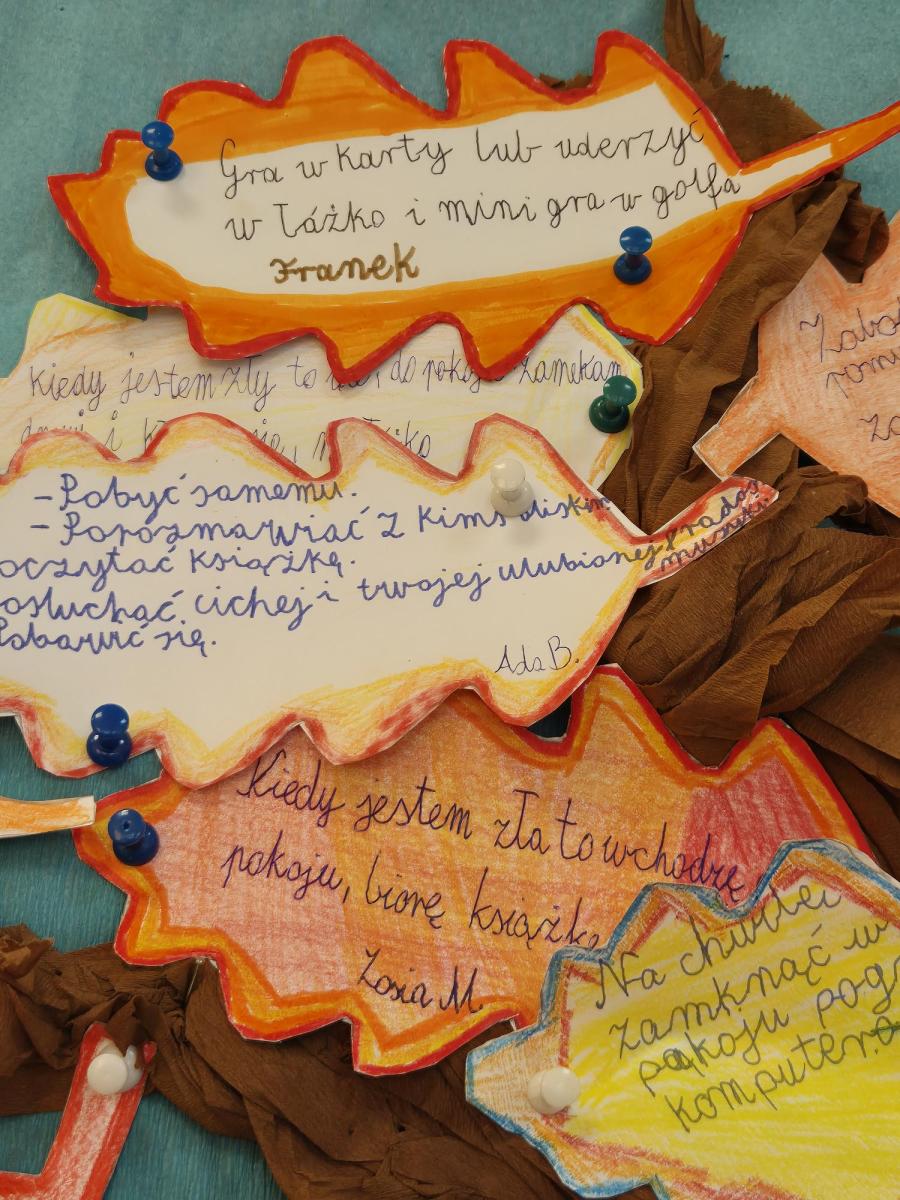 Gra w karty lub uderzyć
w łóżko i mini gra w golfa
Franek
kiedy jestem zły to do pokoju zamekam
i
- Pobyć samemu.
- Porozmawiać z kimś bliskim
oczytać książkę.
osłuchać cichej i twojej ulubionej
muzyki
Pobawić się.
Ada B.
Kiedy jestem zła to wchodzę
pokoju, biorę książkę
Zosia M.
Na chwilei
zamknąć w
pokoju pog
komputera